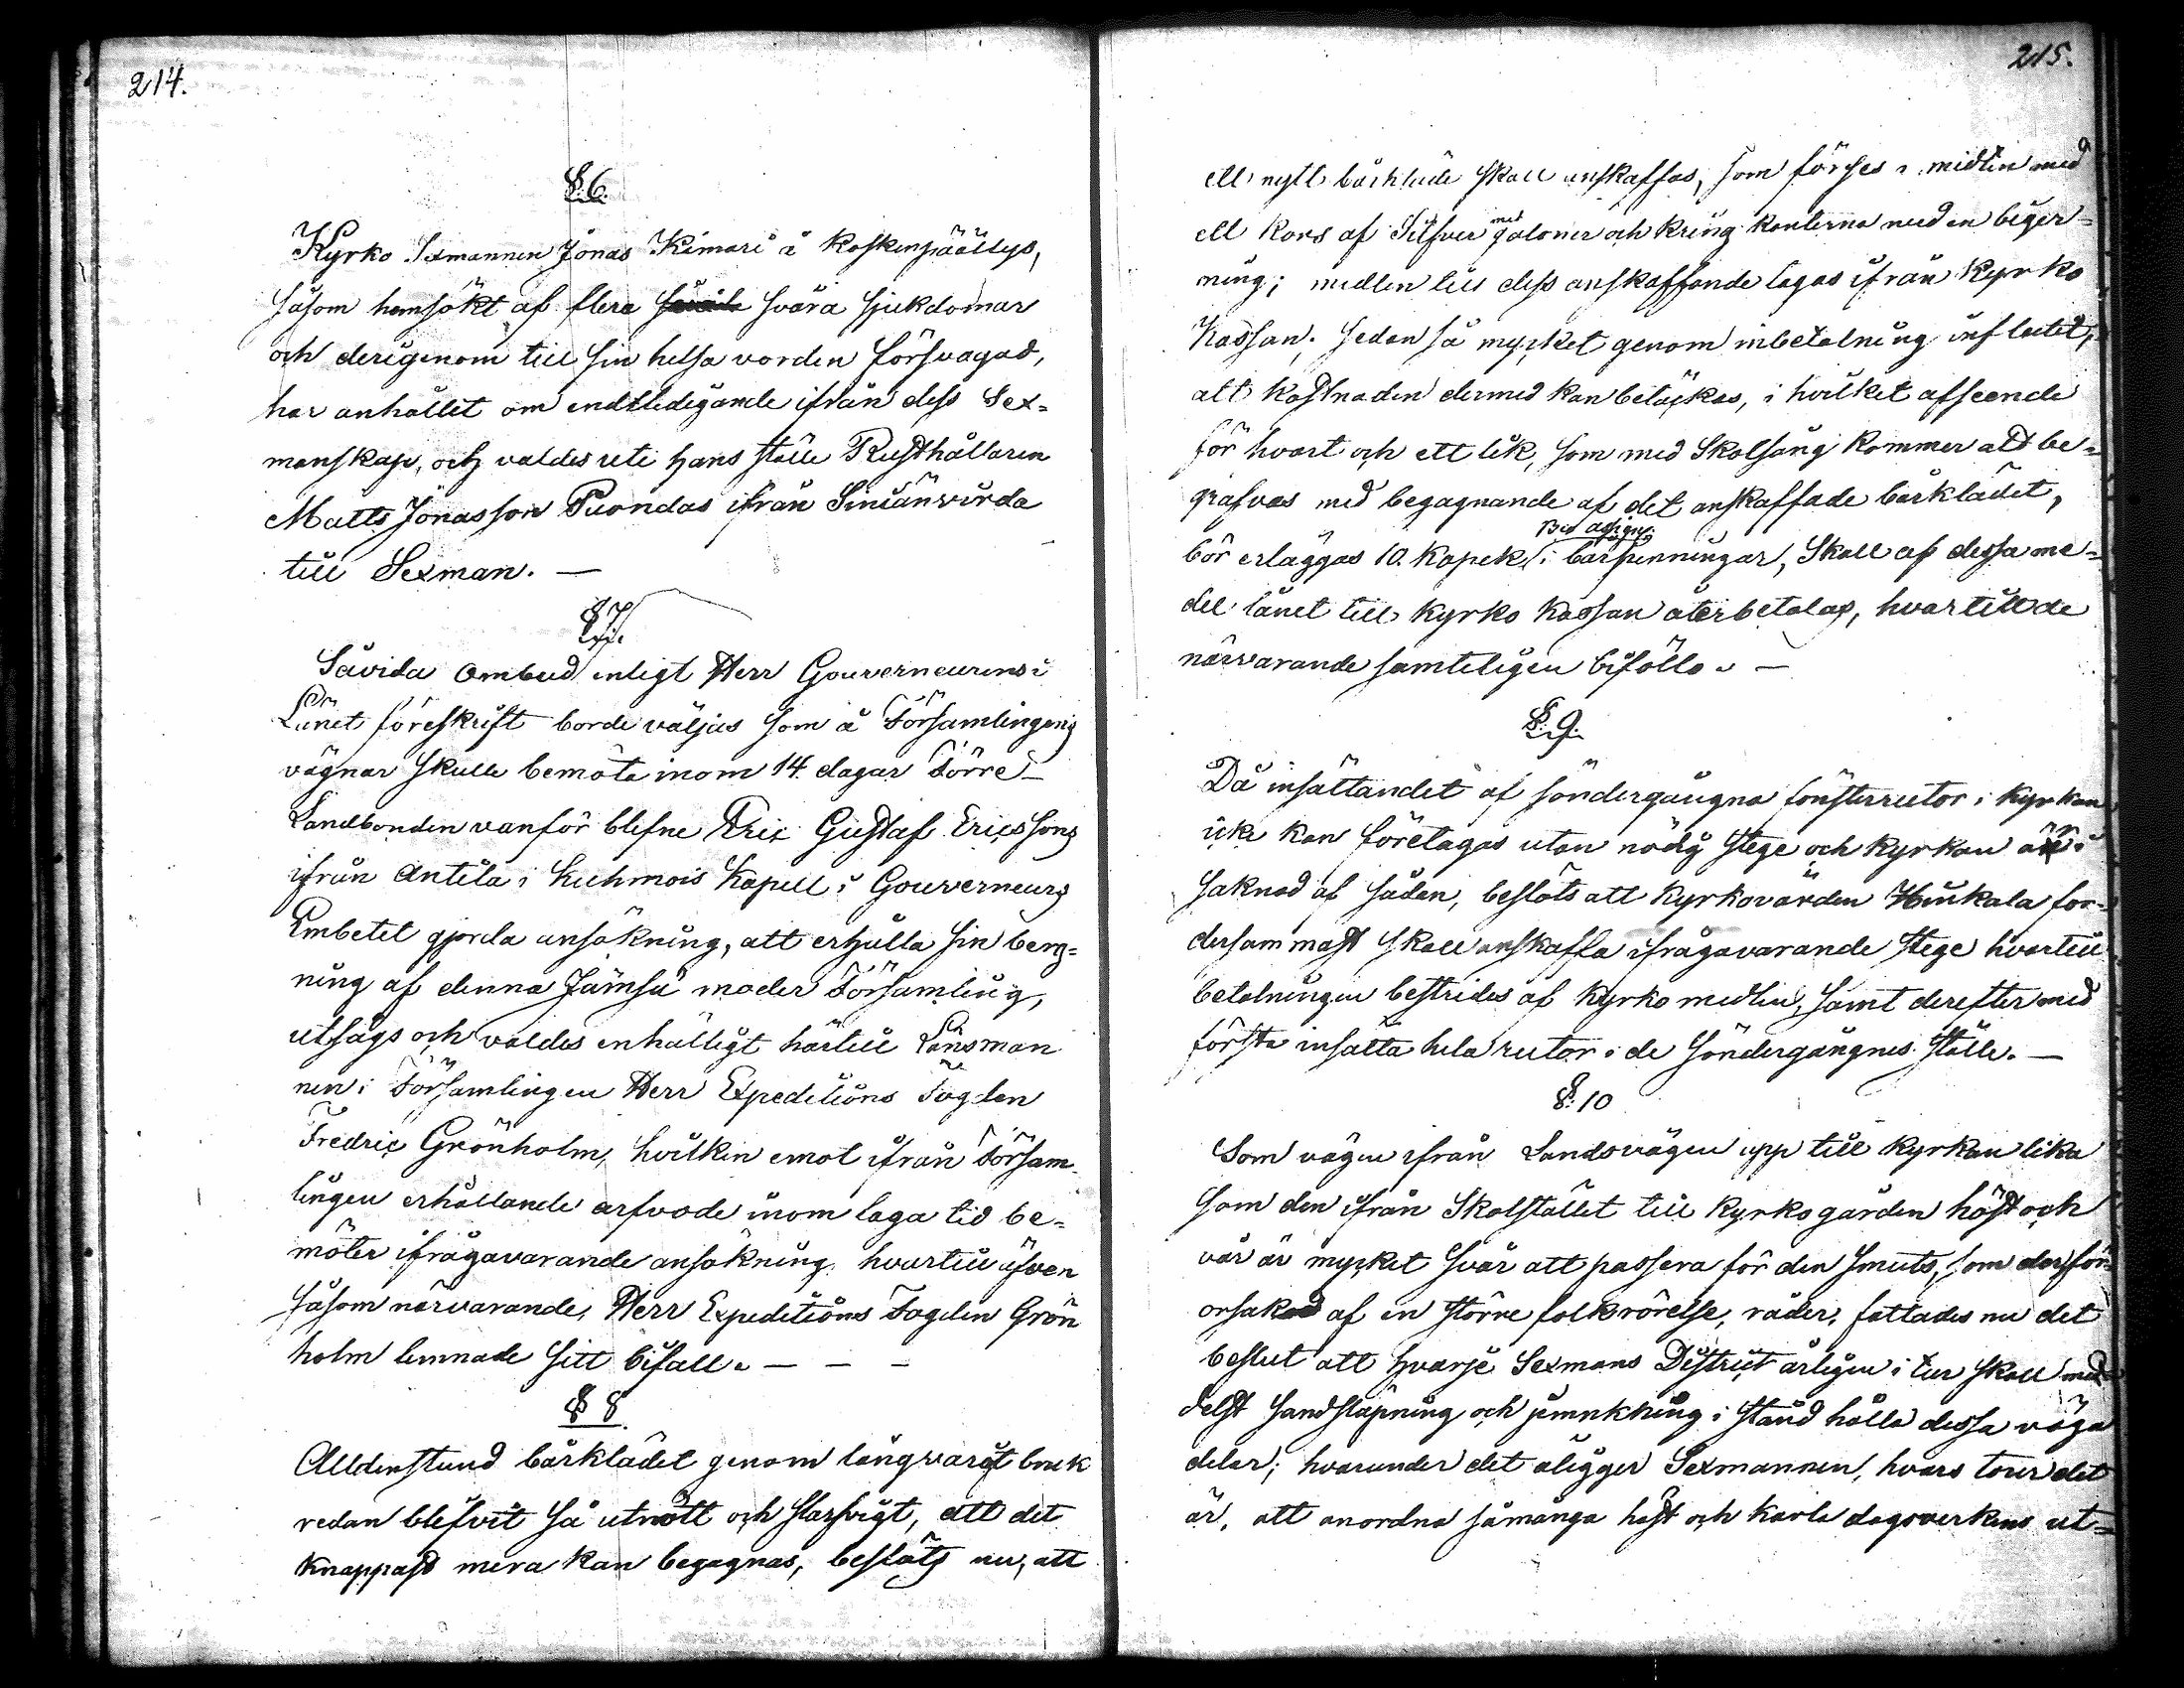 214.
§.6.
Kyrko Sexmannen Jonas Kimari i Koskenpäällys,
såsom hemsökt af flera svåra sjukdomar
och derigenom till sin helsa vorden försvagad,
har anhållet om endtledigande ifrån dess Sex=
manskap, och valdes uti hans ställe Rusthållaren
Matts Jonasson Puondas ifrån
till Sexman. —
§.7.
Såvida Ombud enligt Herr Gouverneurens i
Länet föreskrift borde väljas som å Församlingens
vägnar skulle bemöta inom 14 dagar Förre
Landbonden vanför blefne Eric Gustaf Ericssons
ifrån Antila i Kuhmois Kapell i Gouverneurs
Embetet gjorda ansökning, att erhålla sin berg=
ning af denna Jämsä moder Församling,
utsågs och valdes enhälligt härtill Länsman
nen i Församlingen Herr Expeditions Fogden
Fredric Grönholm, hvilken emot ifrån Försam=
lingen erhållande arfvode inom laga tid be=
möter ifrågavarande ansökning. hvartill äfven
såsom närvarande, Herr Expeditions Fogden Grön
holm lemnade sitt bifall. — — —
§ 8.
Alldenstund bårklädet genom långvarigt bruk
redan blifvit så utnött och slarfvigt, att det
knappast mera kan begagnas, beslöts nu, att
215.
ett nytt bårkläde skall anskaffas, som förses i midten med
ett kors af Silfver med galoner och kring kanterna med en beger=
ning; medlen till dess anskaffande tagas ifrån Kyrko
Kassan. sedan så mycket genom inbetalning influtet,
att kostnaden dermed kan betäckas, i hvilket afseende
för hvart och ett lik, som med Skolsång kommer att be=
grafvas med begagnande af det anskaffade bårklädet,
bör erläggas 10. Kopek i bårpenningar, Skall af dessa me=
del lånet till Kyrko Kassan återbetalas, hvartill de
närvarande samteligen biföllo. —
§.9.
Då insättandet af söndergångna fönsterrutor i Kyrkan
icke kan företagas utan nödig stege och Kyrkan är i
saknad af sådan, beslöts att Kyrkovärden Hiukala for=
dersammast skall anskaffa ifrågavarande stege hvartill
betalningen bestrides af Kyrko medlen, samt derefter med
första insätta hela rutor i de söndergångnes ställe. —
§. 10
Som vägen ifrån Landsvägen upp till Kyrkan lika
som den ifrån Skolstället till Kyrkogården höst och
vår är mycket svår att passera för den smuts, som der för=
orsakad af en större folkrörelse, råder, fattades nu det
beslut att hvarje Sexmans District årligen i tur skall med=
delst Sandsläpning och jemnkning i stånd hålla dessa väga
delar; hvarunder det åligger Sexmannen, hvars tour det
är, att anordna såmånga häst och karla dagsverkens ut=